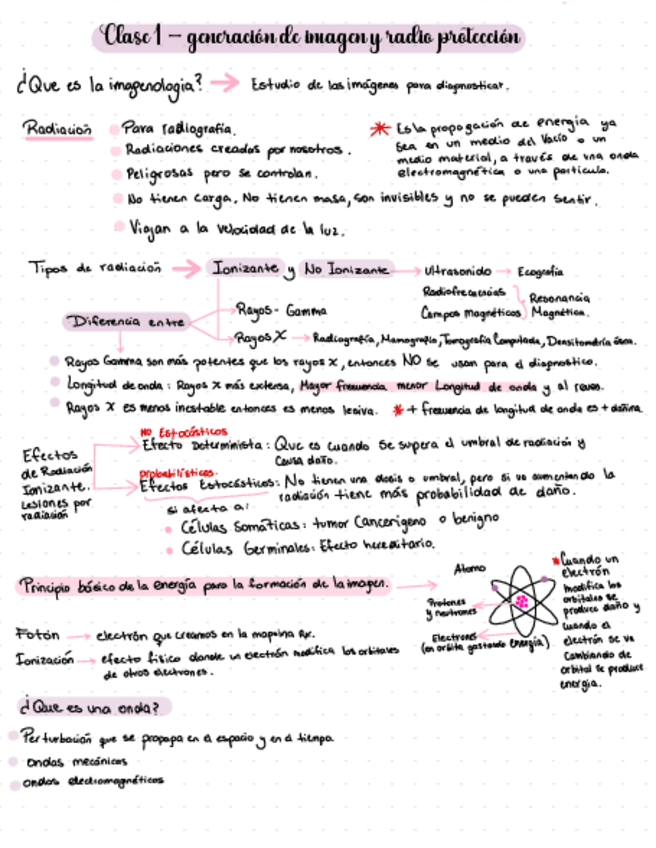 Clase 1 - generación de imagen y radio protección
¿Que es la imagenologia? → Estudio de las imágenes para diagnosticar.
Radiación
Para radiografia.
Radiaciones creadas por nosotros.
Peligrosas pero se controlan.
No tienen carga, No tienen masa, son invisibles y no se pueden sentir.
Viajan a la velocidad de la luz.
* Es la propagación de energia ya
sea en un medio del Vacio o un
medio material, a través de una onda
electromagnética o una particula.
Tipos de radiación → Ionizante y No Ionizante → Ultrasonido → Ecografia
Radiofrecuencias
Campos magnéticos
Resonancia
Magnética.
Diferencia entre
Rayos - Gamma
Rayos X → Radiografía, Mamografia, Tomografia Computada, Densitometria ósea.
Rayos Gamma son más potentes que los rayos x, entonces NO se usan para el diagnostico.
Longitud de onda: Rayos x más extensa, Mayor frecuencia menor Longitud de onda y al reves.
Rayos X es menos inestable entonces es menos lesiva. * + frecuencia de longitud de onda es + dañina.
Efectos
de Radiación
Ionizante.
Lesiones por
radiación
NO Estocásticos
Efecto Determinista: Que es cuando se supera el umbral de radiación y
causa daño.
probabilísticos.
Efectos Estocásticos: No tienen una dosis o umbral, pero si va aumentando la
radiación tiene más probabilidad de daño.
si afecta a:
Células Somáticas: tumor Cancerigeno o benigno
Células Germinales: Efecto hereditario.
Principio básico de la energía para la formación de la imagen. →
Atomo
Protones
y neutrones
Electrones
(en orbita gastando Energía)
* Cuando un
electrón
modifica los
orbitales se
produce daño y
cuando el
electrón se va
cambiando de
orbital se produce
energia.
Fotón → electrón que creamos en la maquina Rx.
Ionización → efecto fisico donde un electrón modifica los orbitales
de otros electrones.
¿Que es una onda?
Perturbación que se propaga en el espacio y en el tiempo
ondas mecánicas
ondas electromagnéticas